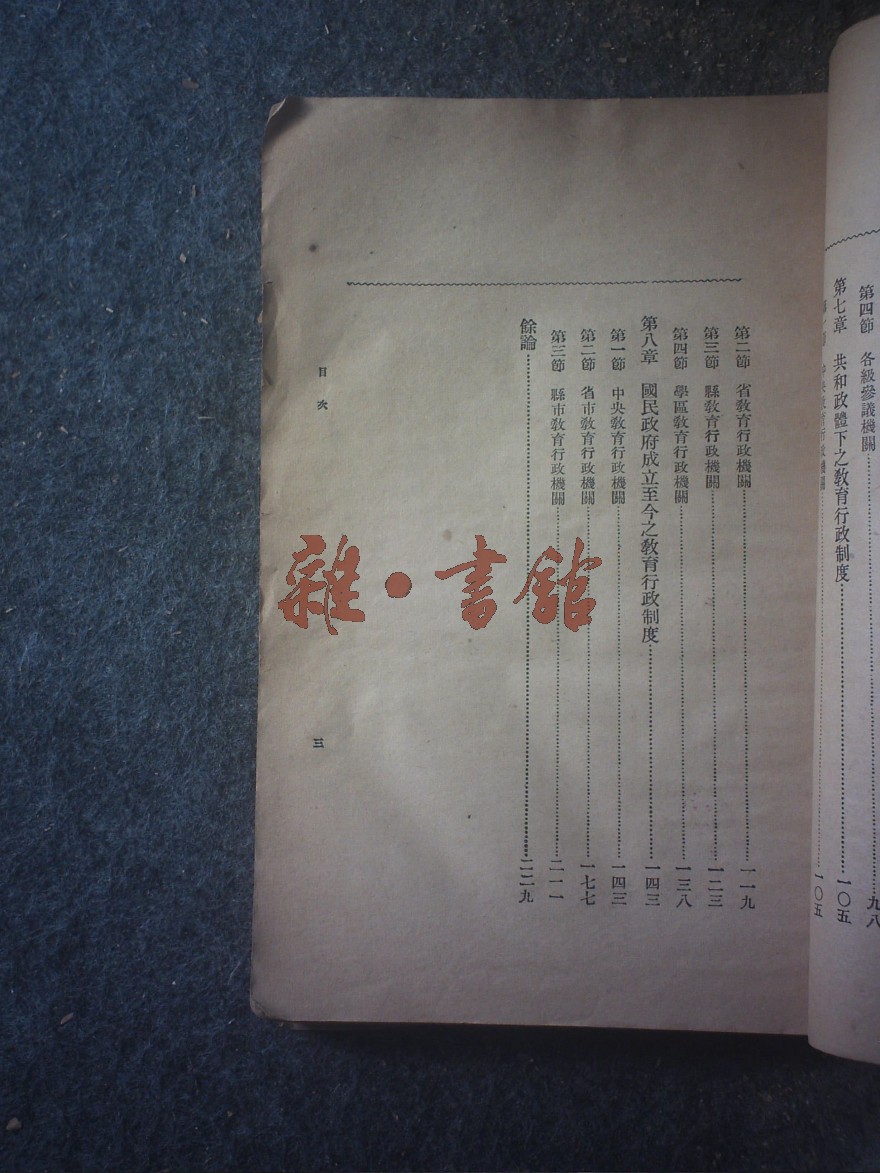 第四節　各級參議機關……九八
第七章　共和政體下之教育行政制度……一〇五
教育行政機關……一〇五
第二節　省教育行政機關……一一九
第三節　縣教育行政機關……一二三
第四節　學區教育行政機關……一三八
第八章　國民政府成立至今之教育行政制度……一四三
第一節　中央教育行政機關……一四三
第二節　省市教育行政機關……一七七
第三節　縣市教育行政機關……二一一
餘論……二二九
目次
三
雜·書館